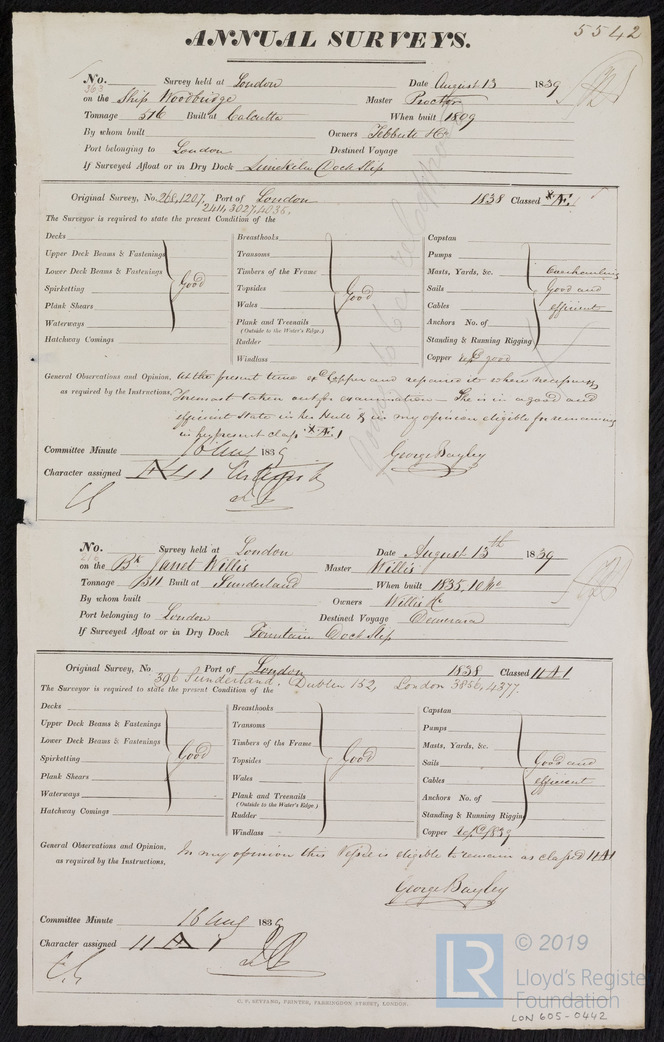 5542
ANNUAL SURVEYS.
No. Survey held at London Date August 13 1839
363
on the Ship Woodbridge Master Proctor
Tonnage 516 Built at Calcutta When built 1809
By whom built Owners Tebbutt &Co
Port belonging to London Destined Voyage
If Surveyed Afloat or in Dry Dock Limekiln Dock Slip
Original Survey, No. 268, 1207, Port of London 1838 Classed Æ1
2411, 3027, 4036.
The Surveyor is required to state the present Condition of the
Decks Breasthooks Capstan
Upper Deck Beams & Fastenings Transoms Pumps
Lower Deck Beams & Fastenings Timbers of the Frame Masts, Yards, &c. Overhauling
Spirketting Good Topsides Good Sails Good and
Plank Shears Wales Cables efficient
Waterways Plank and Treenails Anchors No. of
(Outside to the Water's Edge.)
Hatchway Comings Rudder Standing & Running Rigging
Windlass Copper good
General Observations and Opinion, At the present time exd Copper and repaired it where necessary
as required by the Instructions. Foremast taken out for examination - She is in a good and
efficient State in her Hull & in my opinion eligible for remaining
in her present class Æ1
Committee Minute 16 Aug 1839 George Bayley
Character assigned Æ 1
No. Survey held at London Date August 13th 1839
on the Bk Janet Willis Master Willis
Tonnage 311 Built at Sunderland When built 1835, 10 Mo
By whom built Owners Willis &c
Port belonging to London Destined Voyage Demerara
If Surveyed Afloat or in Dry Dock Fountain Dock Slip
Original Survey, No Port of London 1838 Classed 11 A 1
396 Sunderland. Dublin 152, London 3856, 4377.
The Surveyor is required to state the present Condition of the
Decks Breasthooks Capstan
Upper Deck Beams & Fastenings Transoms Pumps
Lower Deck Beams & Fastenings Timbers of the Frame Masts, Yards, &c.
Spirketting Good Topsides Good Sails Good and
Plank Shears Wales Cables efficient
Waterways Plank and Treenails Anchors No. of
(Outside to the Water's Edge.)
Hatchway Comings Rudder Standing & Running Rigging
Windlass Copper 1839
General Observations and Opinion, In my opinion this Vessel is eligible to remain as classed 11 A 1
as required by the Instructions.
George Bayley
Committee Minute 16 Aug 1839
Character assigned 11 A 1
C. F. SEYFANG, PRINTER, FARRINGDON STREET, LONDON.
LR © 2019
Lloyd's Register
Foundation
LON 605-0442